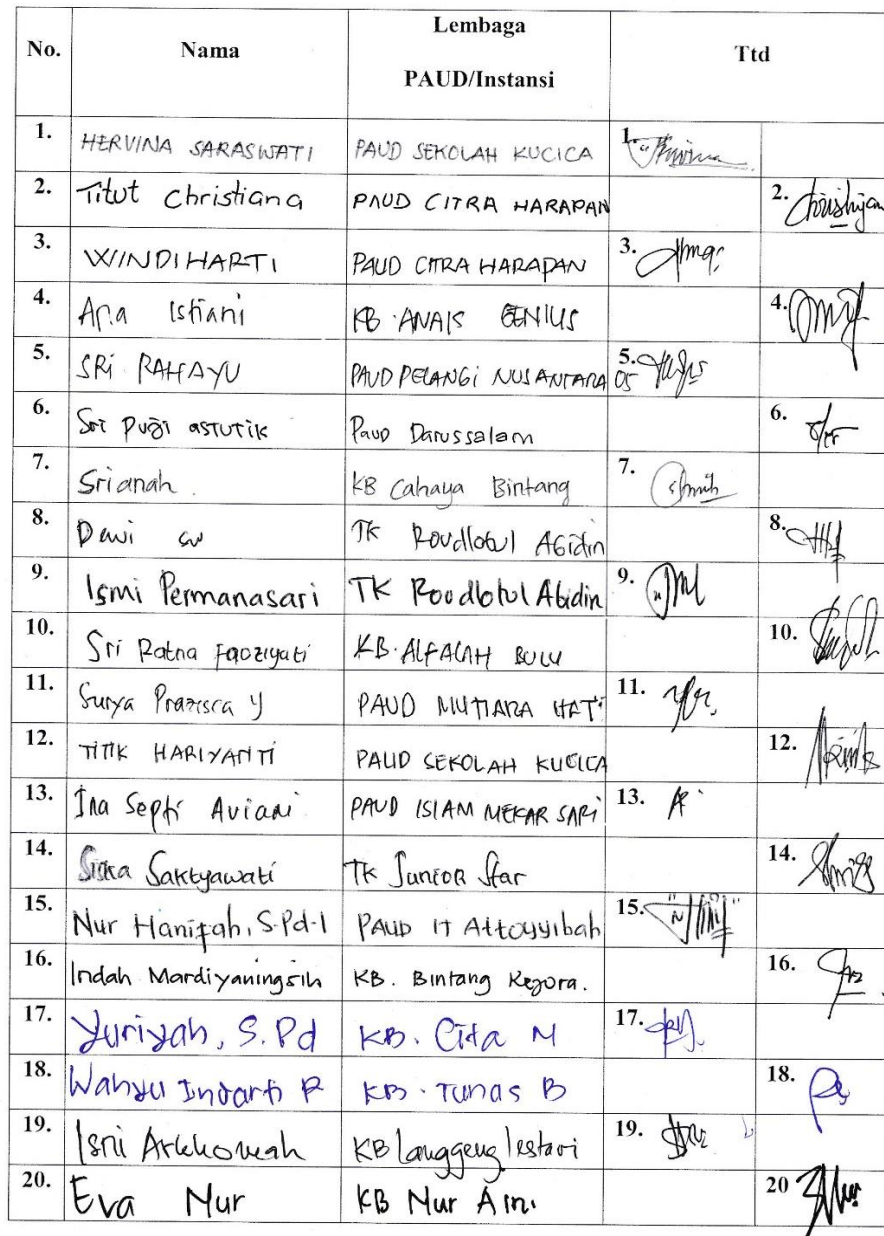 No. Nama Lembaga PAUD/Instansi Ttd
1. HERVINA SARASWATI PAUD SEKOLAH KUCICA 1.
2. Titut Christiana PAUD CITRA HARAPAN 2.
3. WINDIHARTI PAUD CITRA HARAPAN 3.
4. Ana Istiani KB ANAIS GENIUS 4.
5. SRI RAHAYU PAUD PELANGI NUSANTARA 5. 05
6. Sri Puji astutik Paud Darussalam 6.
7. Srianah. KB Cahaya Bintang 7.
8. Dewi TK Roudlotul Abidin 8.
9. Ismi Permanasari TK Roudlotul Abidin 9.
10. Sri Ratna Faoziyati KB. ALFALAH BULU 10.
11. Surya Y PAUD MUTIARA HATI 11.
12. TITIK HARIYANTI PAUD SEKOLAH KUCICA 12.
13. Ina Septi Aviani PAUD ISLAM MEKAR SARI 13.
14. Siska Saktyawati TK Junior Star 14.
15. Nur Hanifah, S.Pd-I PAUD IT Attoyyibah 15.
16. Indah Mardiyaningsih KB. Bintang Kejora. 16.
17. Yuriyah, S.Pd KB. Cita M 17.
18. Wahyu Indarti R KB. Tunas B 18.
19. Isni KB Langgeng lestari 19.
20. Eva Nur KB Nur Aini 20